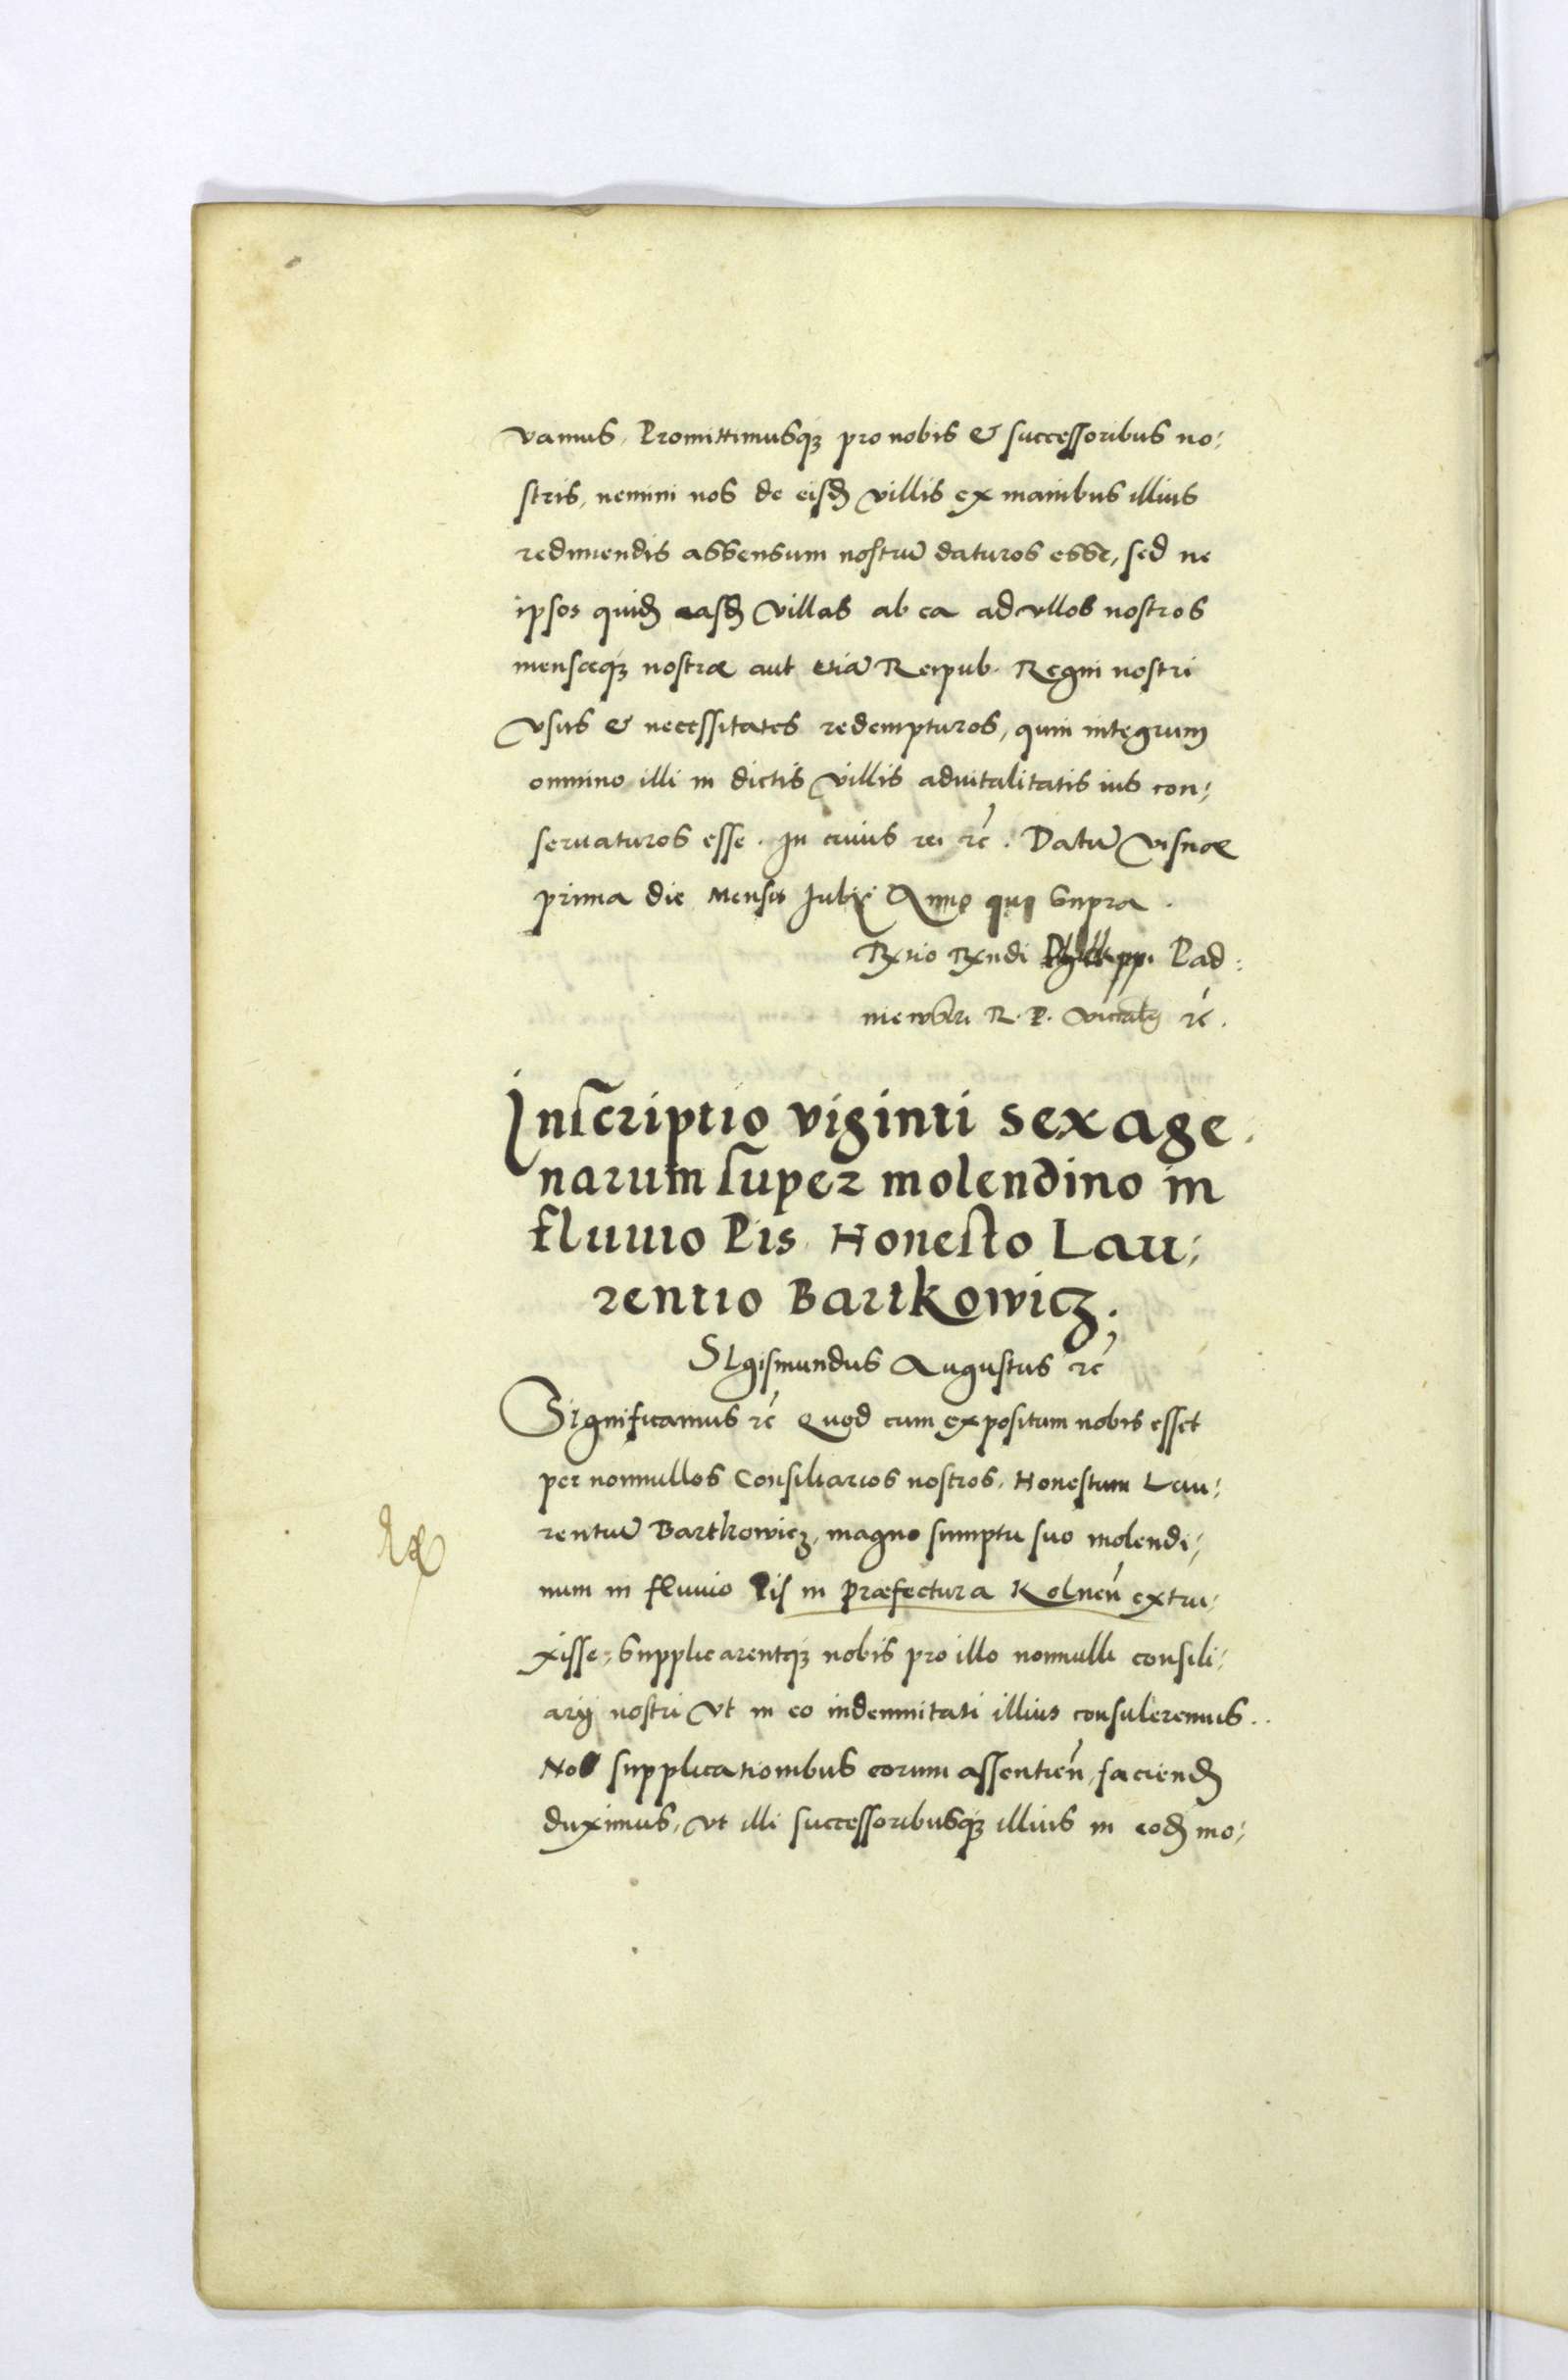 vamus. Promittimusqȝ pro nobis & successoribus no:
stris, nemini nos de eisd villis ex manibus illius
redimendis assensum nostrū daturos esse, sed ne
ipsos quid easd villas ab ea ad vllos nostros
mensæqȝ nostræ aut etiā Reipub. Regni nostri
vsus & necessitates redempturos, quin integrum
omnino illi in dictis villis aduitalitatis ius con:
seruaturos esse. In cuius rei rć. Datū Visnæ
prima die Mensis Iulij Anno quo supra.
Rxtio Rxndi Philippi Pad:
niewski R. P. Vicecancellarij rć.
Inscriptio viginti sexage:
narum super molendino in
fluuio Pis. Honesto Lau:
rentio Bartkowicz.
SIgismundus Augustus rć
SIgnificamus rć Quod cum expositum nobis esset
per nonnullos Consiliarios nostros, Honestum Lau:
rentiū Bartkowicz, magno sumptu suo molendi:
num in fluuio Pis in præfectura Kolneń extru:
xisse, Supplicarentqȝ nobis pro illo nonnulli consili:
arij nostri vt in eo indemnitati illius consuleremus.
Nos supplicationibus eorum assentień, faciend
duximus, vt illi successoribusqȝ illius in eod mo: